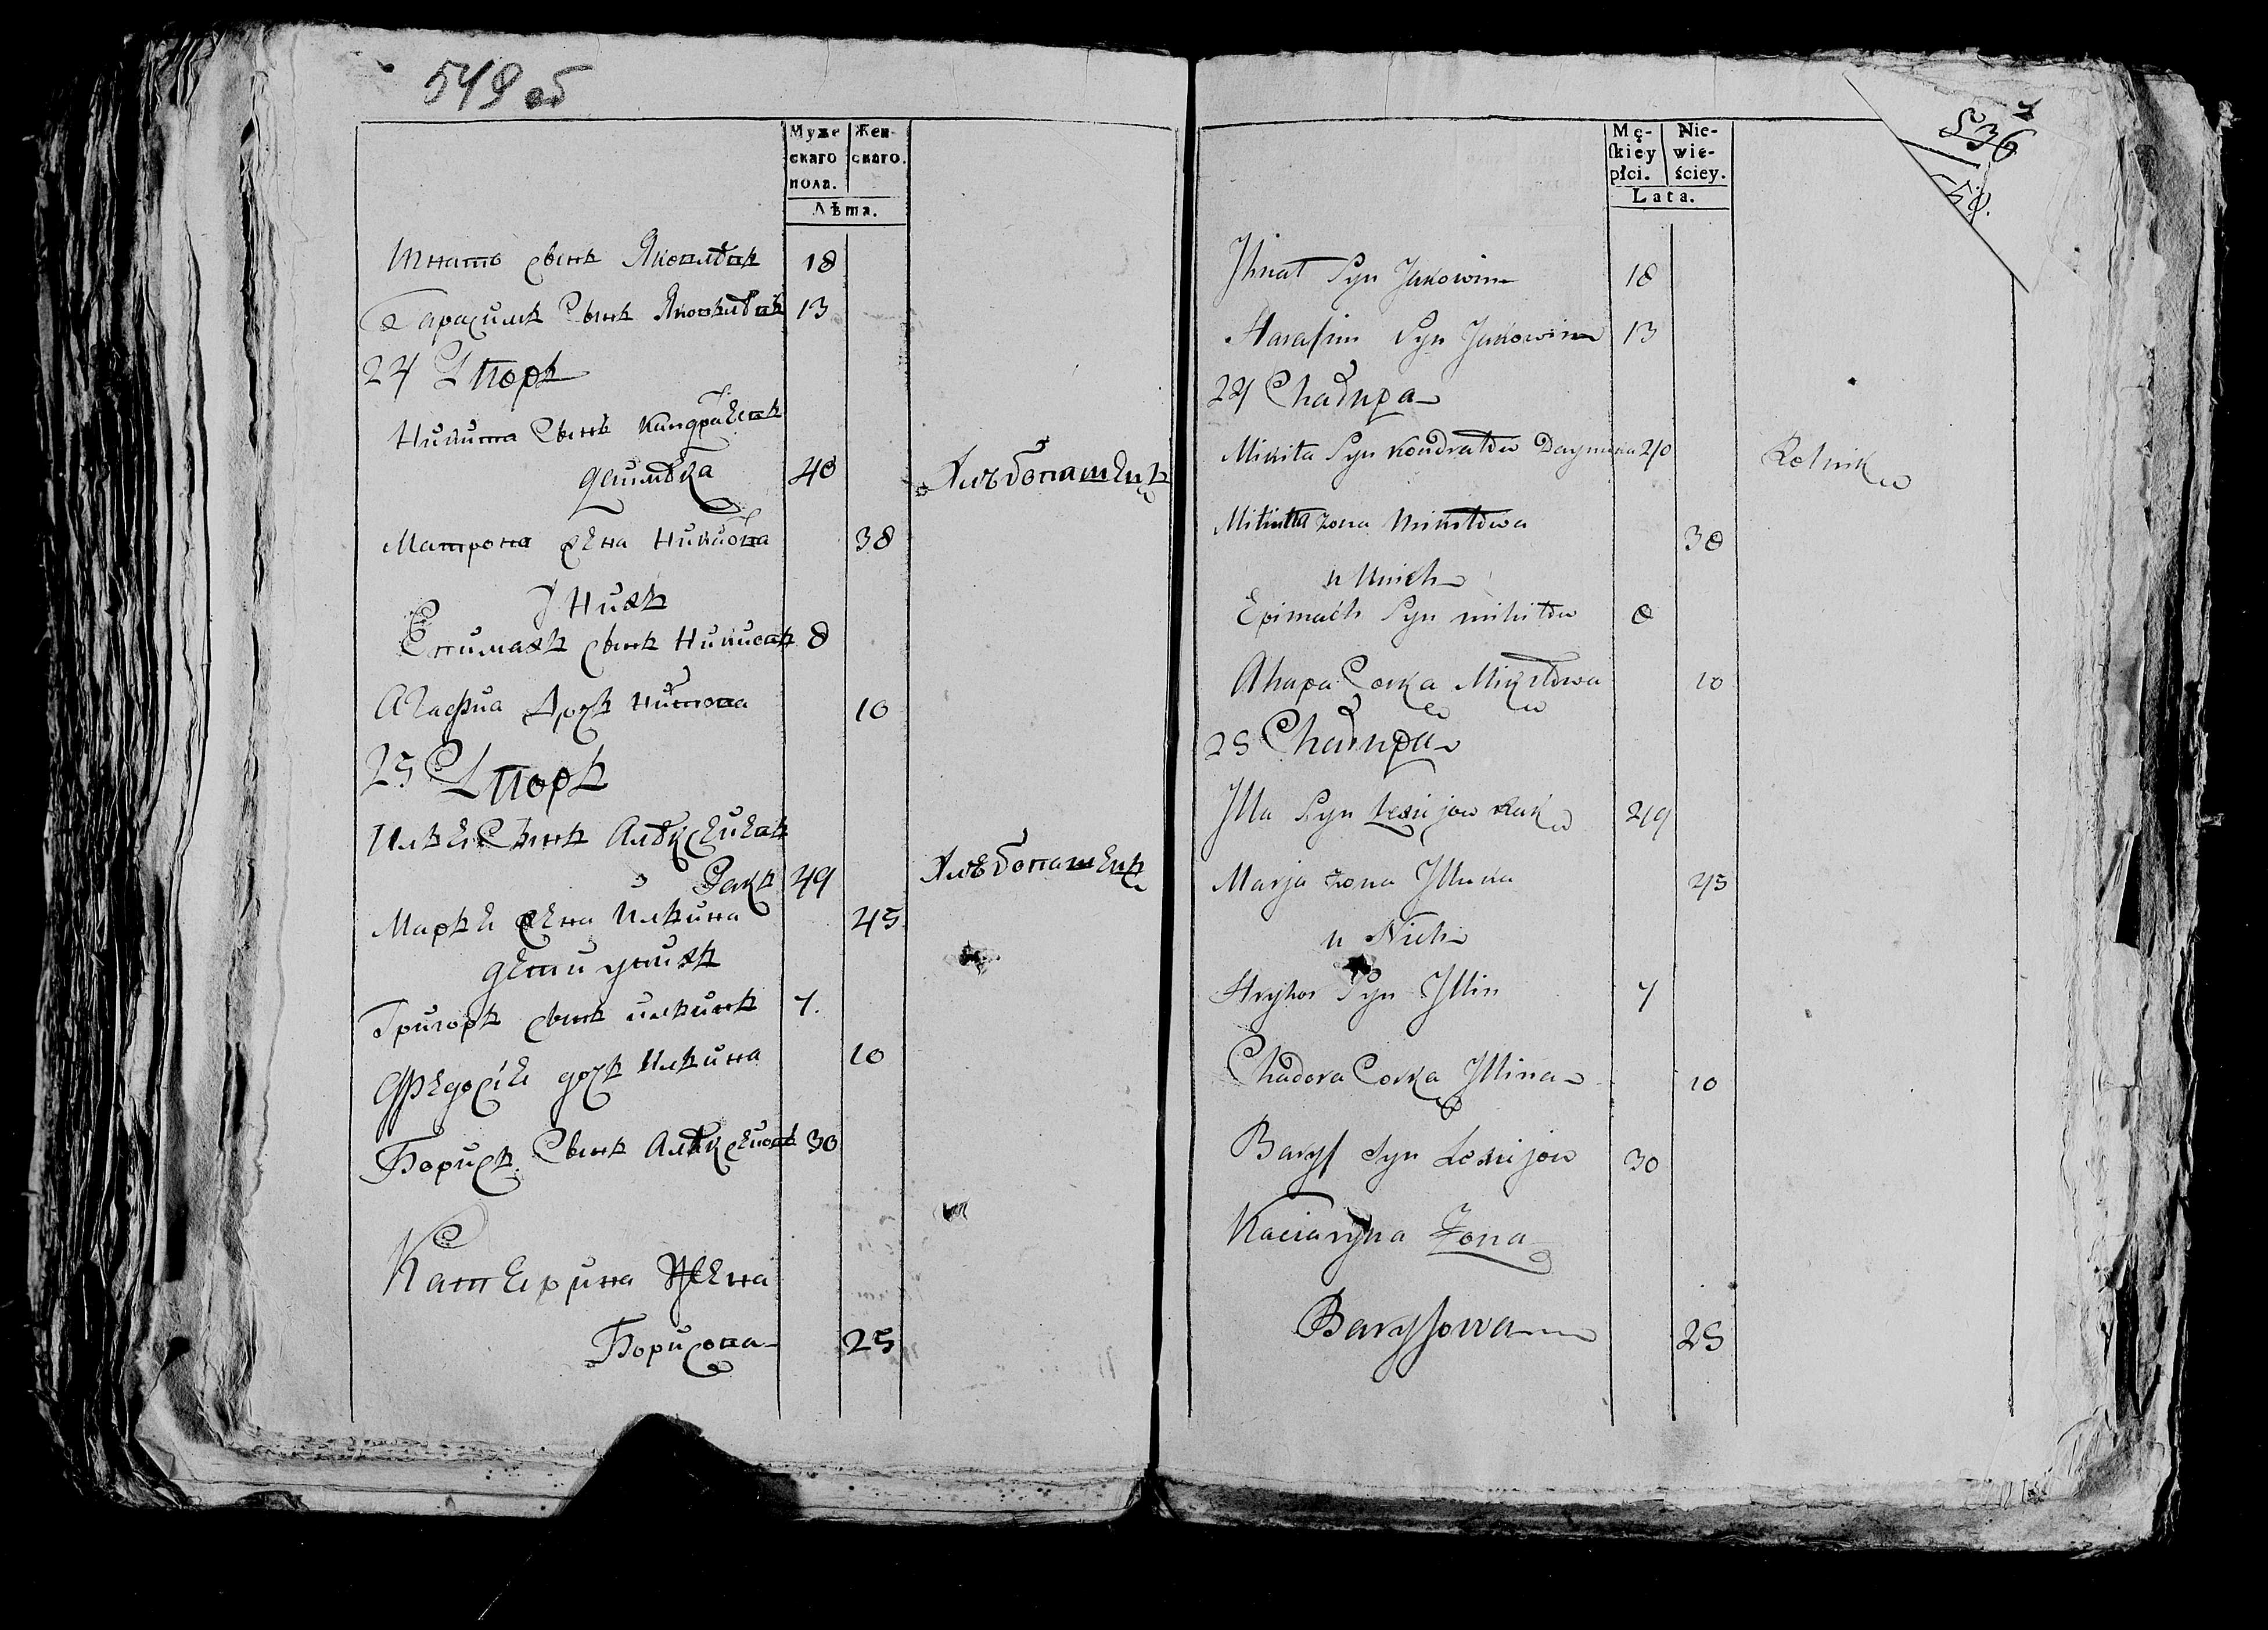 549 об
Муже
скаго
пола.
Жен-
скаго.
Лѣта.
Игнатъ сынъ Яковлѣвъ 18
Гарасимъ Сынъ Яковлѣвъ 13
24 Дворъ
Никита Сынъ Кандратевъ
40 Хлѣбопашецъ
Матрона жена Никитова 38
У Нихъ
Епимахъ сынъ Никитовъ 8
Агафиа дочъ Никитова 10
25 Дворъ
Илье Сынъ Алѣксеиевъ
Ракъ 49 Хлѣбопашецъ
Маръе жена Илъина 45
дети унихъ
Григоръ сынъ илъинъ 7.
Федосие дочъ Илъина 10
Борисъ Сынъ Алѣксеиовъ 30
Катерина Жена
Борисова 25
536
Mę-
skiey
płci.
Nie-
wie-
ściey.
Lata.
Jhnat Syn Jakowin 18
Harasim Syn Jakowin 13
24 Chałupa
Mikita Syn Kondratow 40 Rolnik
żona Mikitowa 38
u Nich
Epimach Syn mikitow 8
Ahapa Corka Mikitowa 10
25 Chałupa
Jlla Syn Rak 49
Marja żona 45
u Nich
Hryhor Syn Jllin 7
Chadora Corka Jllina 10
Barys Syn 30
Kaciaryna Żona
Barysowa 25